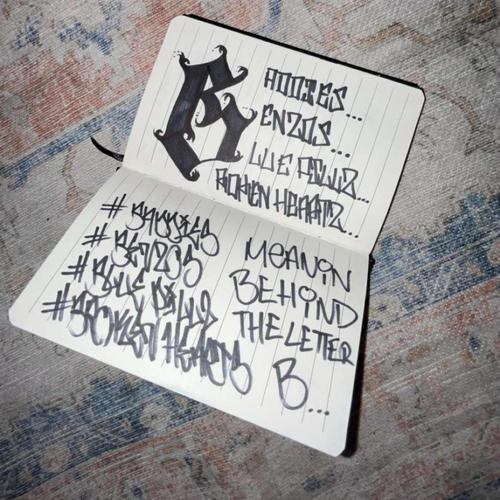 B
ADDIES...
ENZOS...
LUE PILLZ...
ROKEN HEARTZ...
#BADDIES
#BENZOS
#BLUE PILLZ
#BROKEN HEARTS
MEANIN
BEHIND
THE LETTER
B...